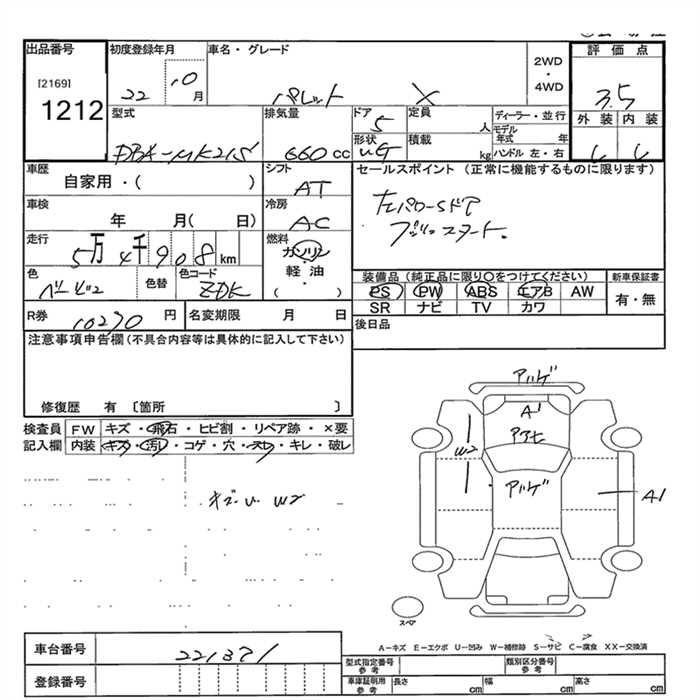 出品番号
[2169]
1212
初度登録年月
22 10 月
車名・グレード
パレット X
2WD
・
4WD
評価点
3.5
外装 内装
型式
DBA-MK21S
排気量
660 cc
ドア
5
形状
定員
人
積載
kg
ディーラー・並行
モデル年式 年
ハンドル 左・右
車歴
自家用・( )
シフト
AT
セールスポイント (正常に機能するものに限ります)
左パワーSドア
プッシュスタート.
車検
年 月( 日)
冷房
AC
走行
5万 4千 9 0 8 km
燃料
ガソリン
軽油
・
( )
色
色替
色コード
ZDK
装備品 (純正品に限り○をつけてください)
PS PW ABS エアB AW
SR ナビ TV カワ
新車保証書
有・無
R券
10270 円
名変期限 月 日
後日品
注意事項申告欄(不具合内容等は具体的に記入して下さい)
修復歴 有 〔箇所 〕
検査員記入欄
FW キズ・飛石・ヒビ割・リペア跡・×要
内装 キズ・汚レ・コゲ・穴・スレ・キレ・破レ
W2
アハゲ
A1
W2
アハゲ
A1
スペア
A-キズ E-エクボ U-凹み W-補修跡 S-サビ C-腐食 XX-交換済
車台番号
221371
登録番号
型式指定番号
参考
類別区分番号
参考
車庫証明用
参考
長さ cm 幅 cm 高さ cm